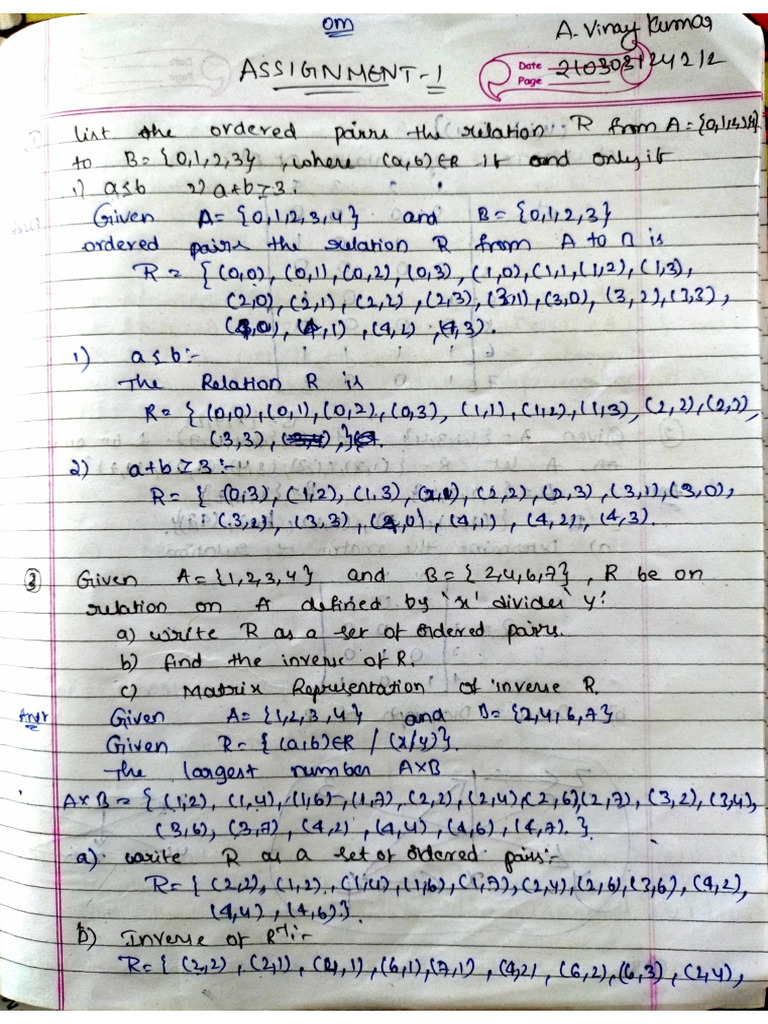 om
A. Vinay Kumar
ASSIGNMENT-1
Date 210303124212
Page
list the ordered pairs the relation R from A={0,1,2,3,4}
to B={0,1,2,3}, where (a,b)∈R if and only if
1) a≤b 2) a+b≥3.
Given A={0,1,2,3,4} and B={0,1,2,3}
ordered pairs the relation R from A to B is
R = {(0,0), (0,1), (0,2), (0,3), (1,0), (1,1, (1,2), (1,3),
(2,0), (2,1), (2,2), (2,3), (3,1), (3,0), (3,2), (3,3),
(4,0), (4,1), (4,2), (4,3).
1) a≤b:-
The Relation R is
R= { (0,0), (0,1), (0,2), (0,3), (1,1), (1,2), (1,3), (2,2), (2,3),
(3,3), }.
2) a+b≥3:-
R= { (0,3), (1,2), (1,3), (2,1), (2,2), (2,3), (3,1), (3,0),
(3,2), (3,3), (4,0), (4,1), (4,2), (4,3).
3 Given A={1,2,3,4} and B={2,4,6,7}, R be on
relation on A defined by 'x' divides 'y'.
a) write R as a set of ordered pairs.
b) find the inverse of R.
c) Matrix Representation of inverse R.
Ans: Given A={1,2,3,4} and B={2,4,6,7}
Given R={ (a,b)∈R / (x/y)}.
The largest number A×B
A×B = { (1,2), (1,4), (1,6), (1,7), (2,2), (2,4), (2,6), (2,7), (3,2), (3,4),
(3,6), (3,7), (4,2), (4,4), (4,6), (4,7). }
a) write R as a set of ordered pairs:-
R= { (2,2), (1,2), (1,4), (1,6), (1,7), (2,4), (2,6), (3,6), (4,2),
(4,4), (4,6)}.
b) Inverse of R⁻¹:-
R= { (2,2), (2,1), (4,1), (6,1), (7,1), (4,2) (6,2), (6,3), (2,4),